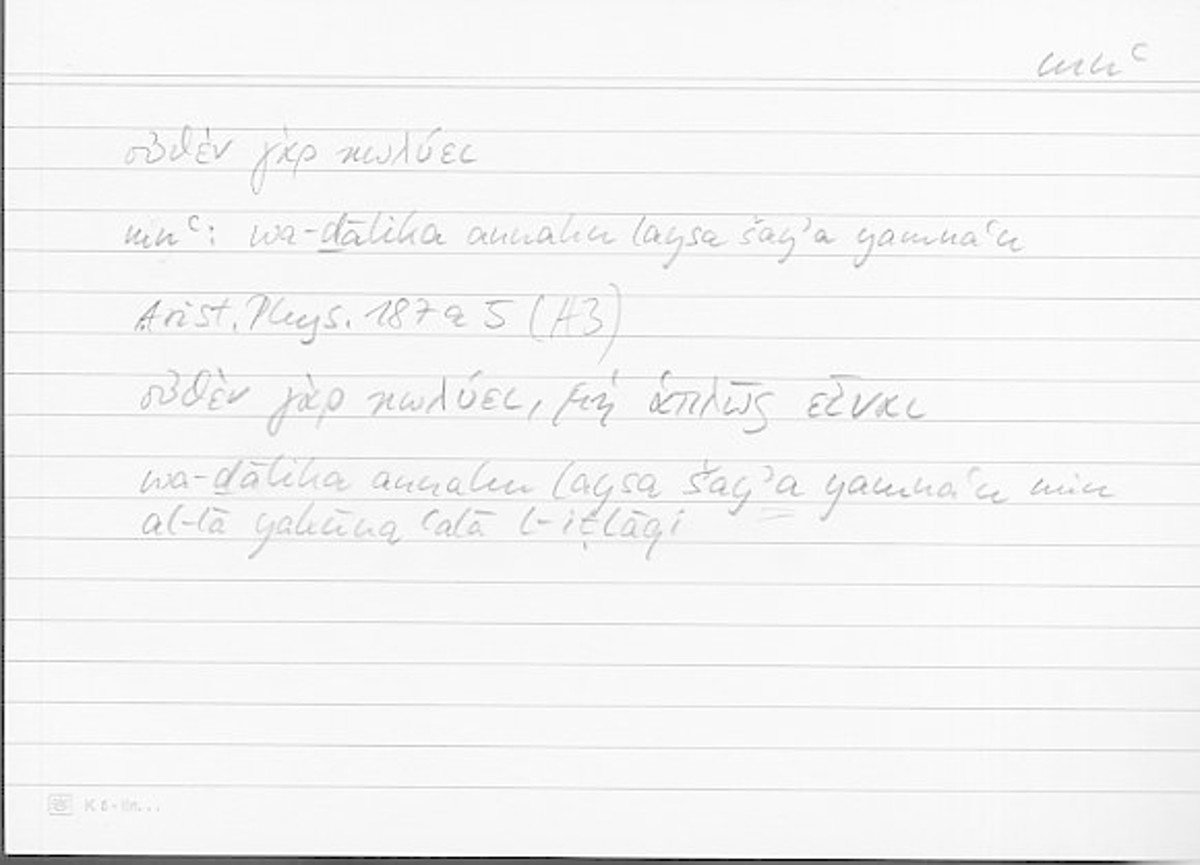 mnʿ
οὐθὲν γὰρ κωλύει
mnʿ: wa-ḏālika annahu laysa šayʾa yamnaʿu
Arist. Phys. 187 a 5 (A3)
οὐθὲν γὰρ κωλύει, μὴ ἁπλῶς εἶναι
wa-ḏālika annahu laysa šayʾa yamnaʿu min
al-lā yakūna ʿalā l-iṭlāqi